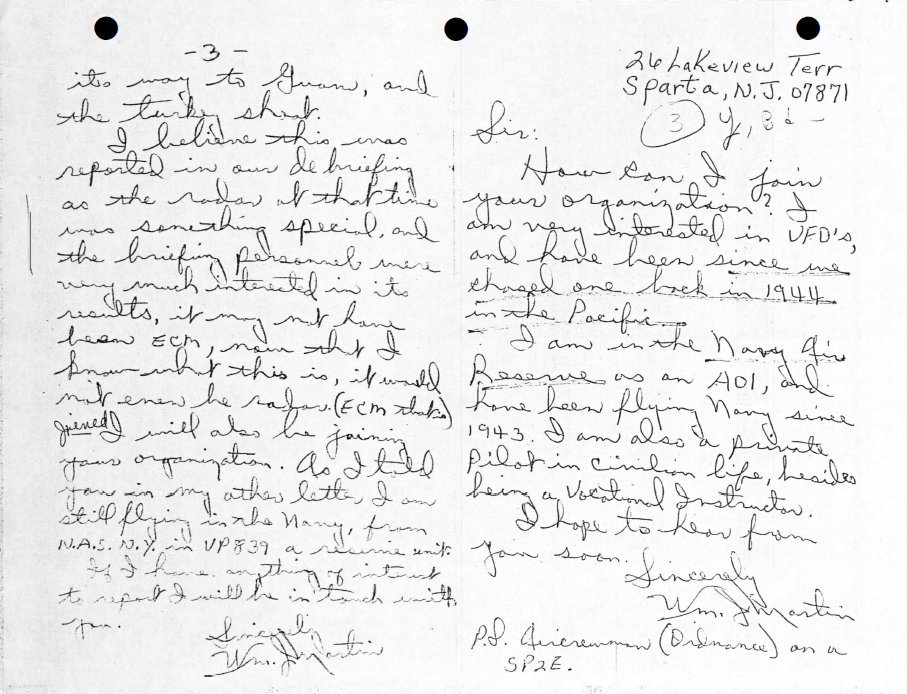 - 3 -
its way to Guam, and
the turkey shoot.
I believe this was
reported in our debriefing
as the radar at that time
was something special, and
the briefing personnel were
very much interested in its
results, it may not have
been ECM, now that I
know what this is, it would
not even be radar. (ECM that is)
joined I will also be joining
your organization. As I told
you in my other letter I am
still flying in the Navy, from
N.A.S. N.Y. in VP839 a reserve unit.
If I have anything of interest
to report I will be in touch with
you.
Sincerely
Wm. J Martin
26 Lakeview Terr
Sparta, N.J. 07871
3
Sir:
How can I join
your organization? I
am very interested in UFO's,
and have been since we
chased one back in 1944
in the Pacific.
I am in the Navy Air
Reserve as an AO1, and
have been flying Navy since
1943. I am also a private
Pilot in civilian life, besides
being a Vocational Instructor.
I hope to hear from
you soon.
Sincerely
Wm. J Martin
P.S. Aircrewman (Ordnance) on a
SP2E.